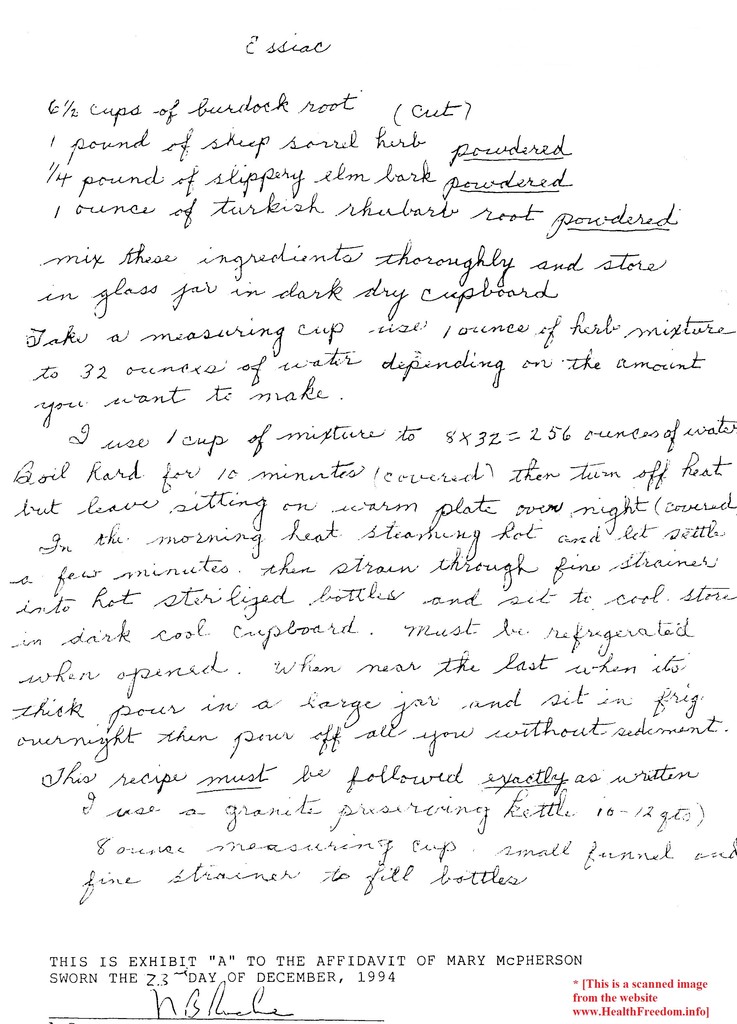 Essiac
6½ cups of burdock root (cut)
1 pound of sheep sorrel herb powdered
1/4 pound of slippery elm bark powdered
1 ounce of turkish rhubarb root powdered
mix these ingredients thoroughly and store
in glass jar in dark dry cupboard
Take a measuring cup use 1 ounce of herb mixture
to 32 ounces of water depending on the amount
you want to make.
I use 1 cup of mixture to 8x32=256 ounces of water
Boil hard for 10 minutes (covered) then turn off heat
but leave sitting on warm plate over night (covered
In the morning heat steaming hot and let settle
a few minutes. then strain through fine strainer
into hot sterilized bottles and sit to cool. store
in dark cool cupboard. Must be refrigerated
when opened. When near the last when its
thick pour in a large jar and sit in frig
overnight then pour off all you without sediment.
This recipe must be followed exactly as written
I use a granite preserving kettle 10-12 qts)
8 ounce measuring cup. small funnel and
fine strainer to fill bottles
THIS IS EXHIBIT "A" TO THE AFFIDAVIT OF MARY McPHERSON
SWORN THE 23rd DAY OF DECEMBER, 1994
* [This is a scanned image
from the website
www.HealthFreedom.info]